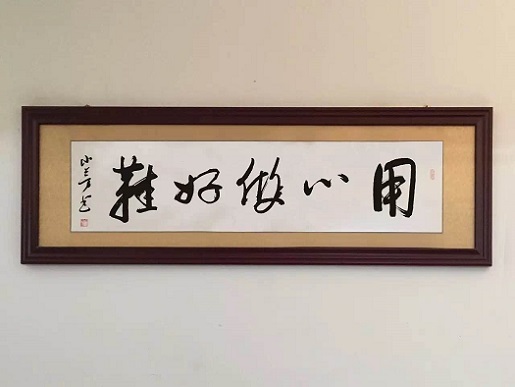 用心做好鞋